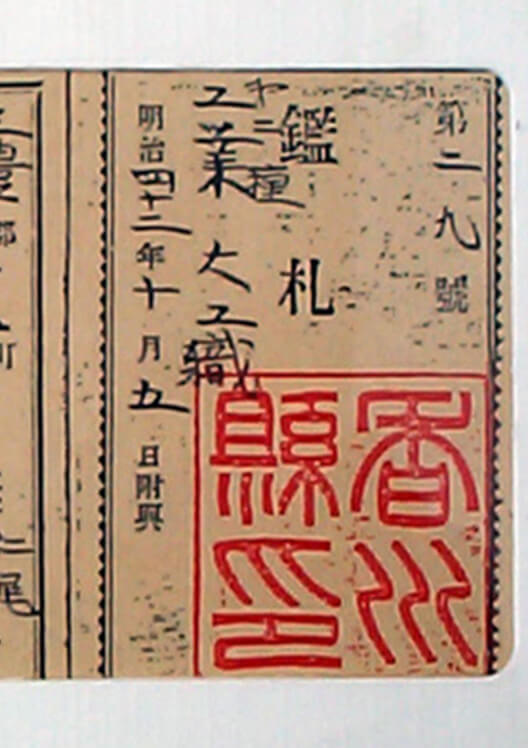 第二九號
鑑札
第二種
工業 大工職
明治四十二年十月五日附與
香川縣印
郡
町
仁尾